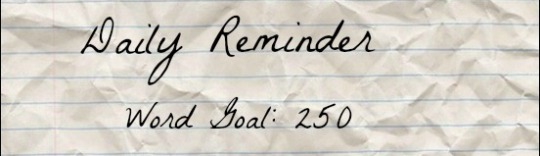 Daily Reminder
Word Goal: 250